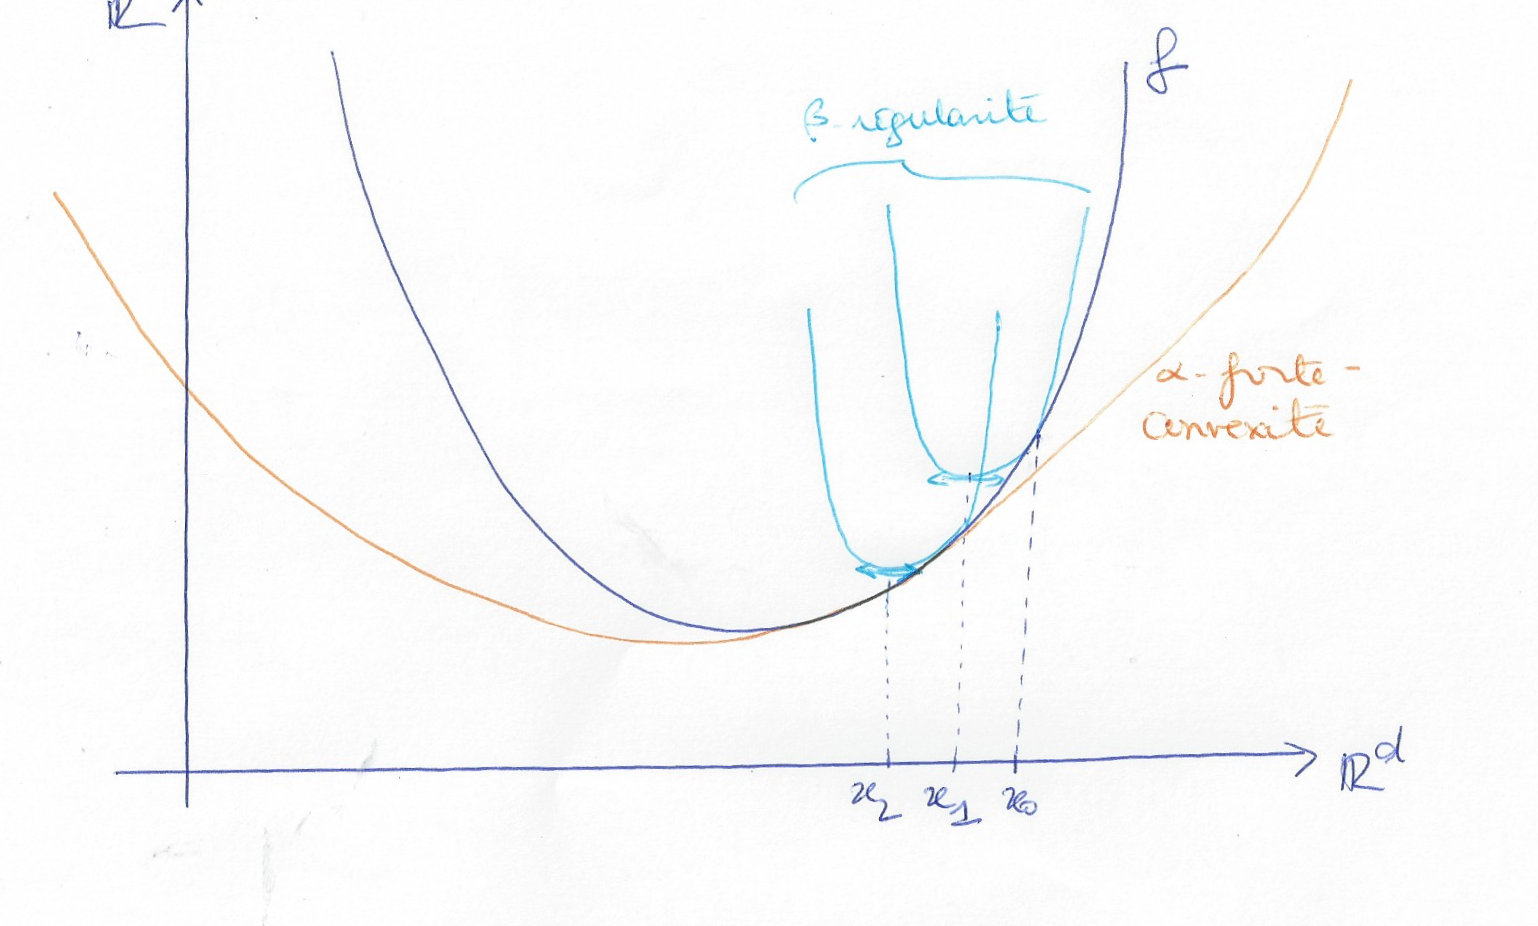 ℝ
f
β-régularité
α-forte-
convexité
ℝᵈ
x₂ x₁ x₀